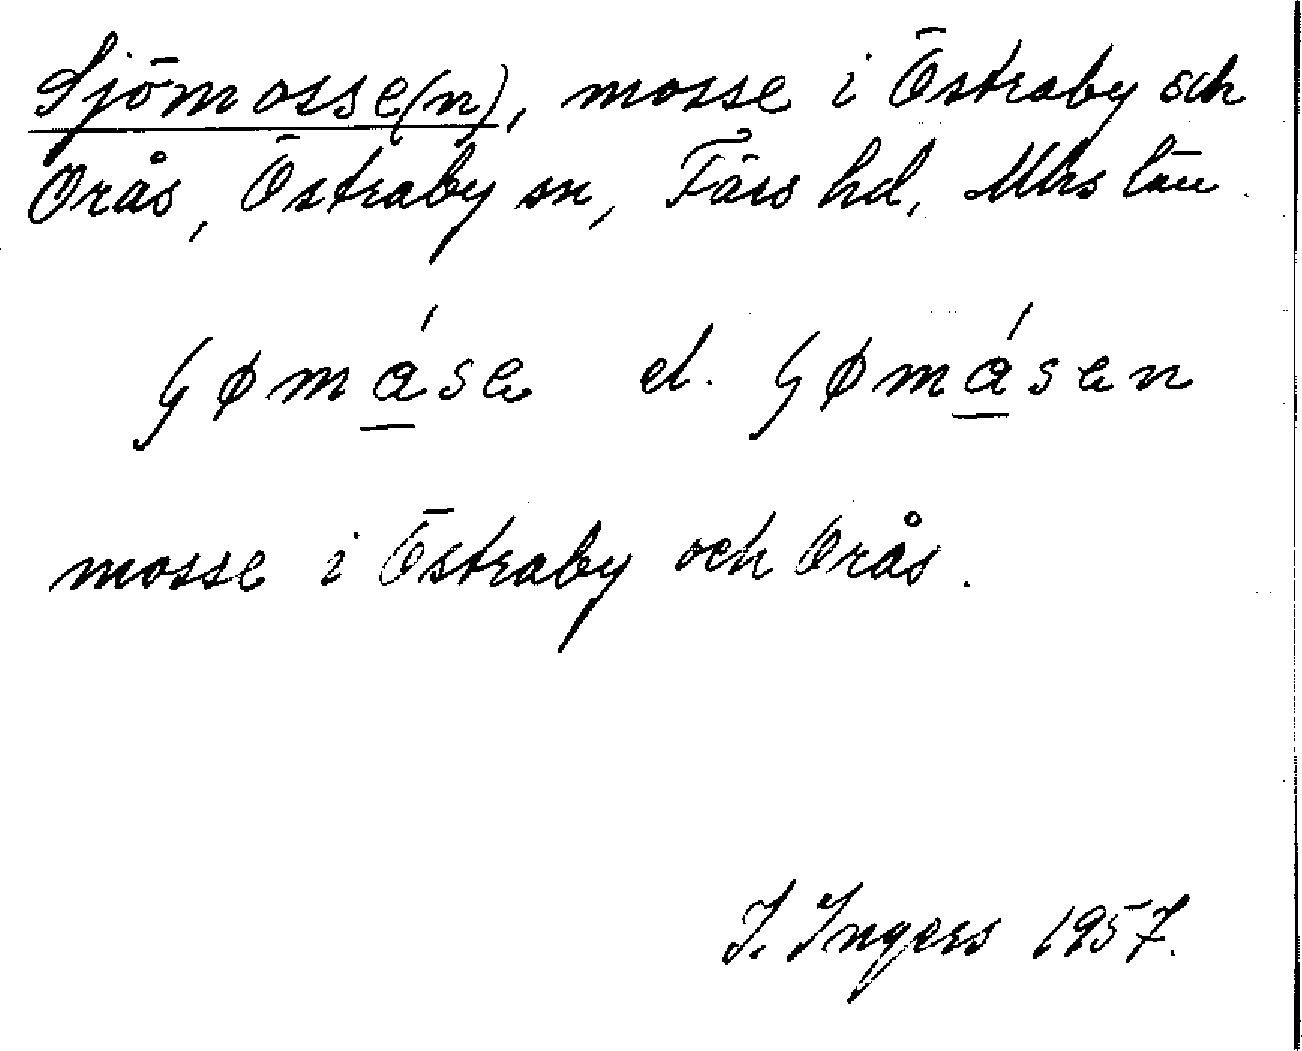 Sjömosse(n), mosse i Östraby och
Orås, Östraby sn, Färs hd, Mhs län.
ʃømáse el. ʃømásen
mosse i Östraby och Orås.
I. Ingers 1957.